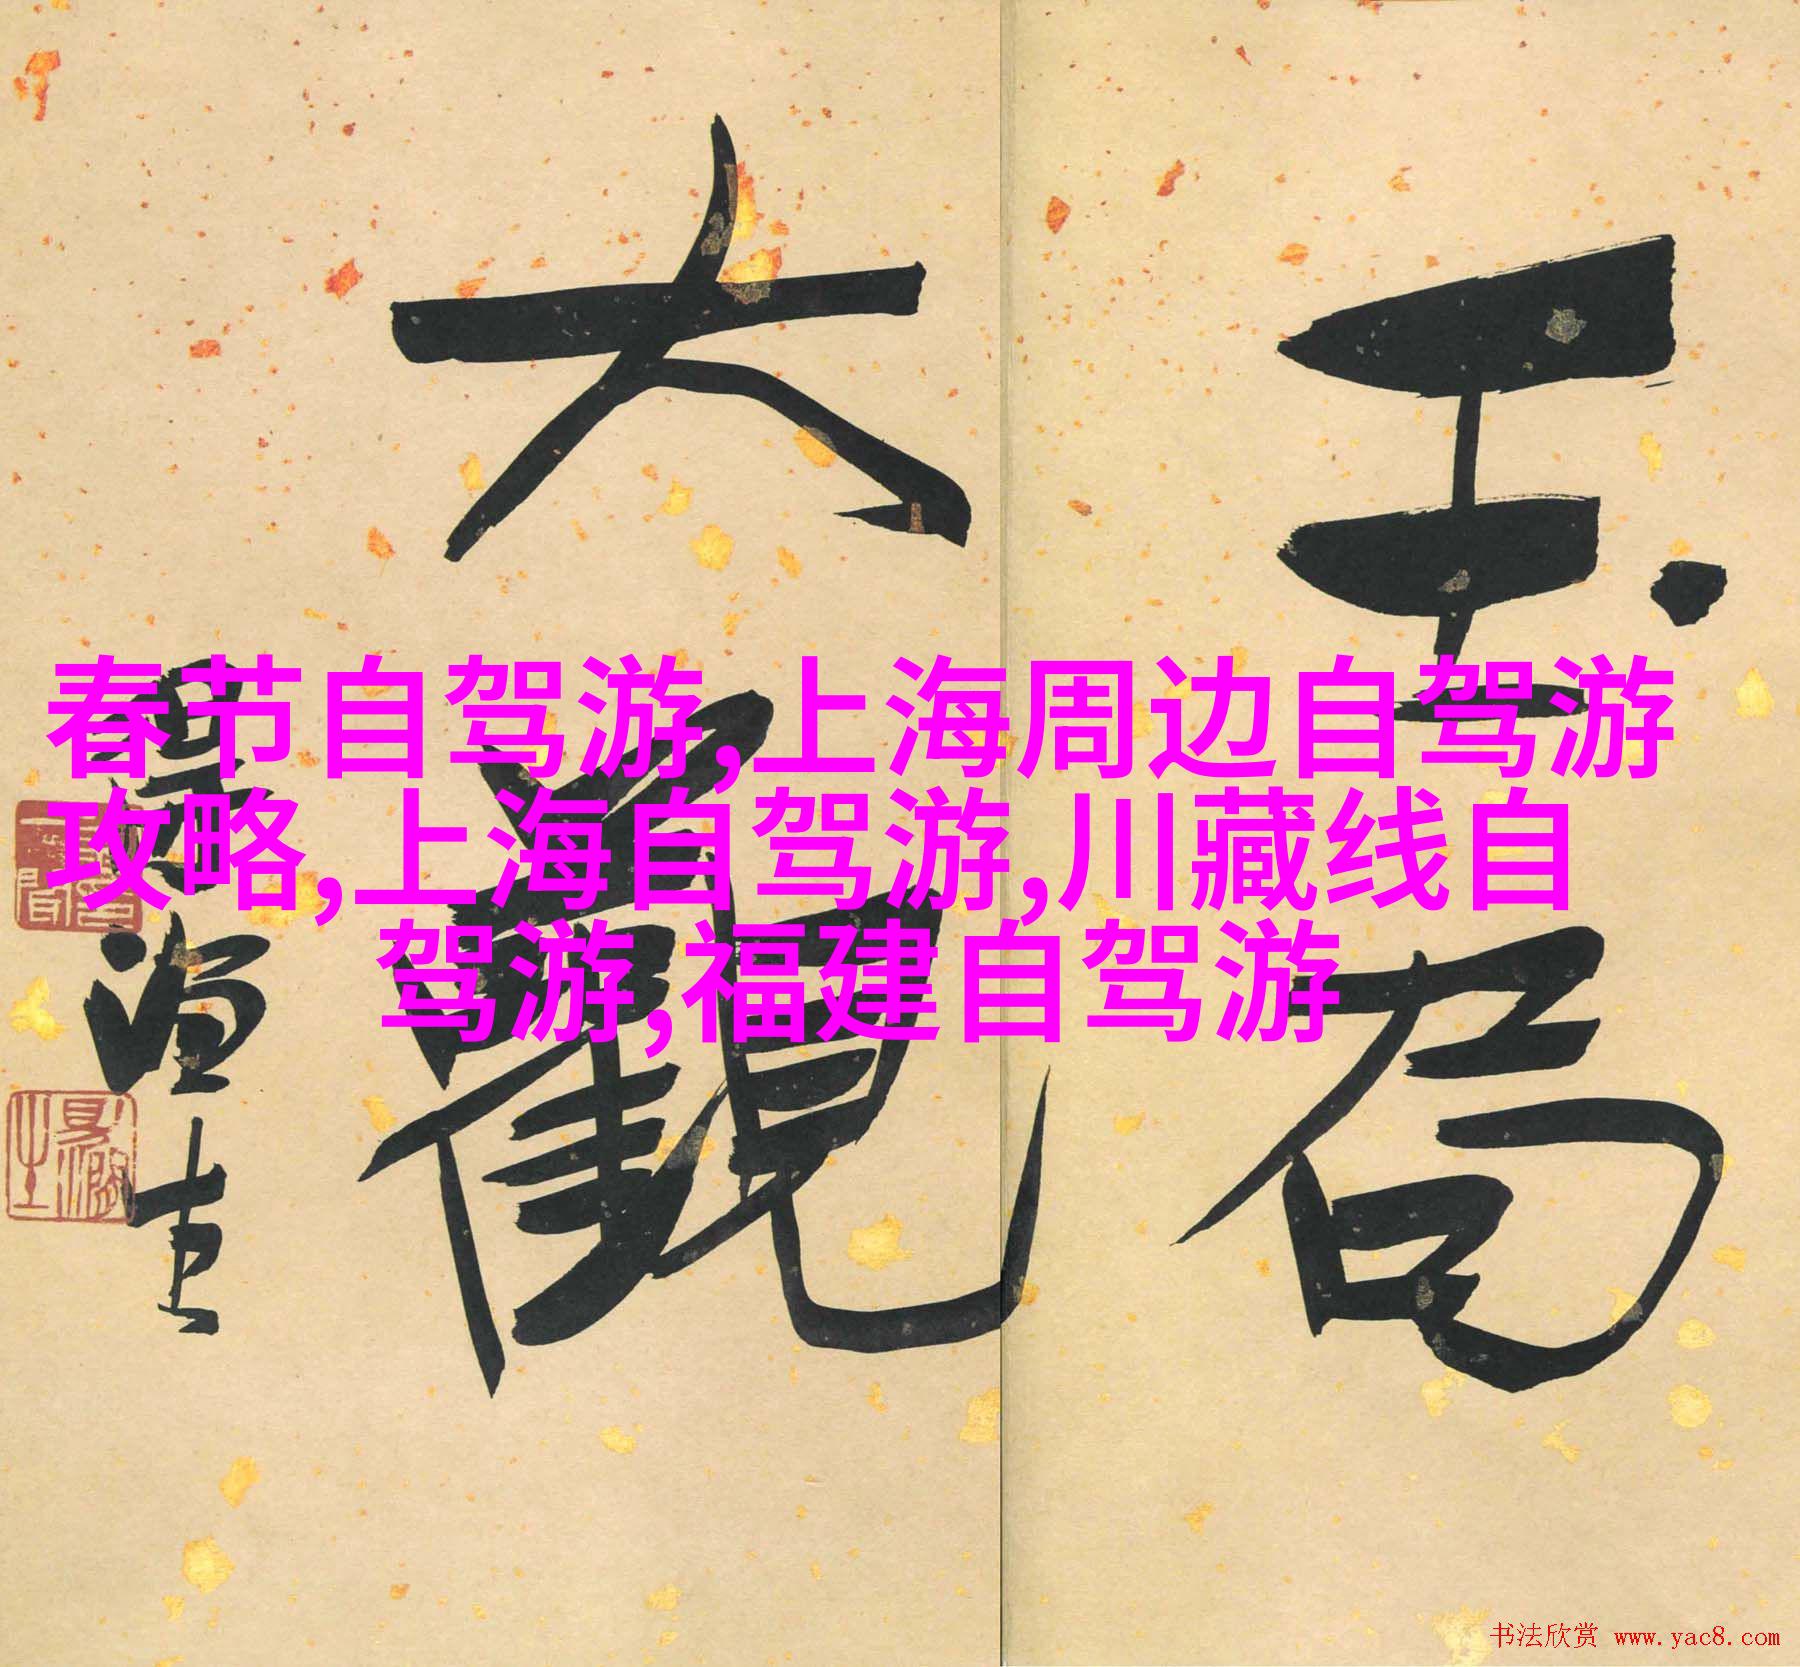 玉局
大觀
春节自驾游,上海周边自驾游
攻略,上海自驾游,川藏线自
驾游,福建自驾游
书法欣赏 www.yac8.com